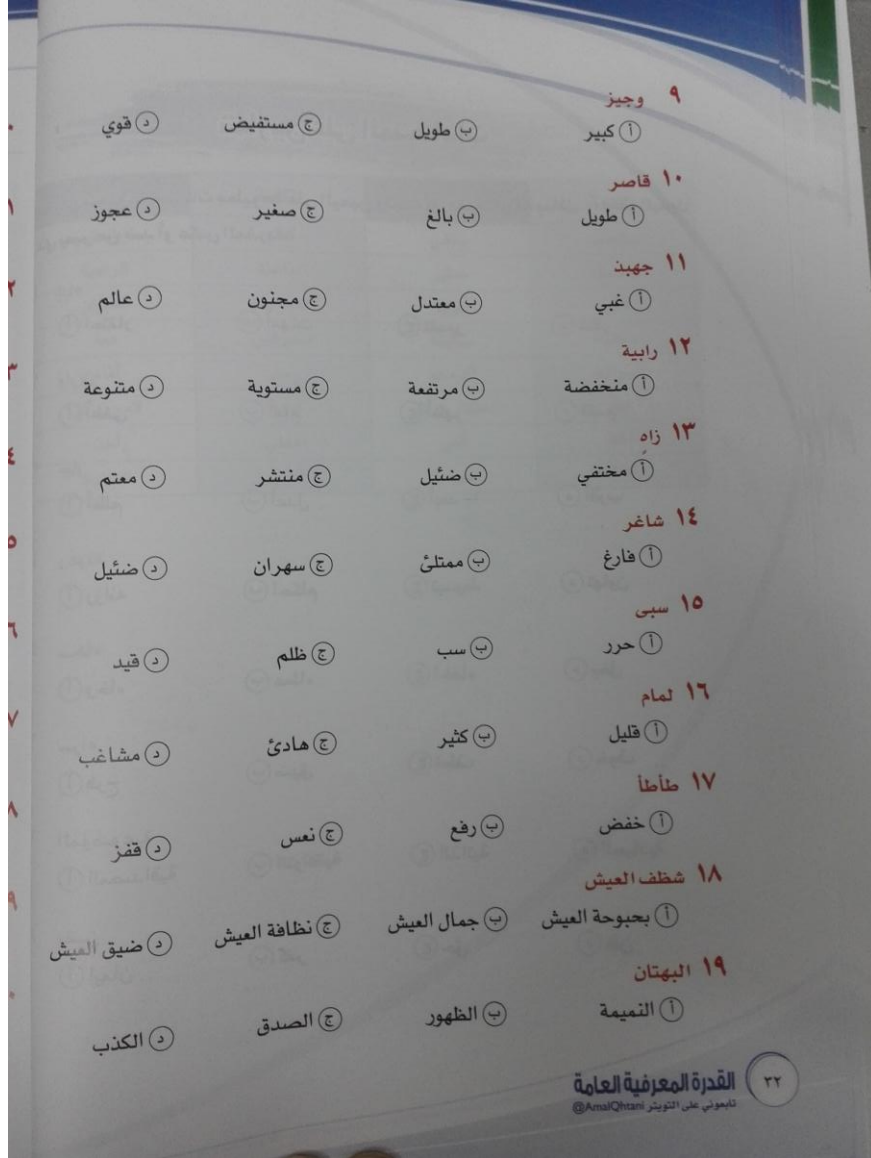 ٩ وجيز
أ كبير ب طويل ج مستفيض د قوي
١٠ قاصر
أ طويل ب بالغ ج صغير د عجوز
١١ جهبذ
أ غبي ب معتدل ج مجنون د عالم
١٢ رابية
أ منخفضة ب مرتفعة ج مستوية د متنوعة
١٣ زاهٍ
أ مختفي ب ضئيل ج منتشر د معتم
١٤ شاغر
أ فارغ ب ممتلئ ج سهران د ضئيل
١٥ سبى
أ حرر ب سب ج ظلم د قيد
١٦ لمام
أ قليل ب كثير ج هادئ د مشاغب
١٧ طأطأ
أ خفض ب رفع ج نعس د قفز
١٨ شظف العيش
أ بحبوحة العيش ب جمال العيش ج نظافة العيش د ضيق العيش
١٩ البهتان
أ النميمة ب الظهور ج الصدق د الكذب
٣٢ القدرة المعرفية العامة
تابعوني على التويتر AmalQhtani@